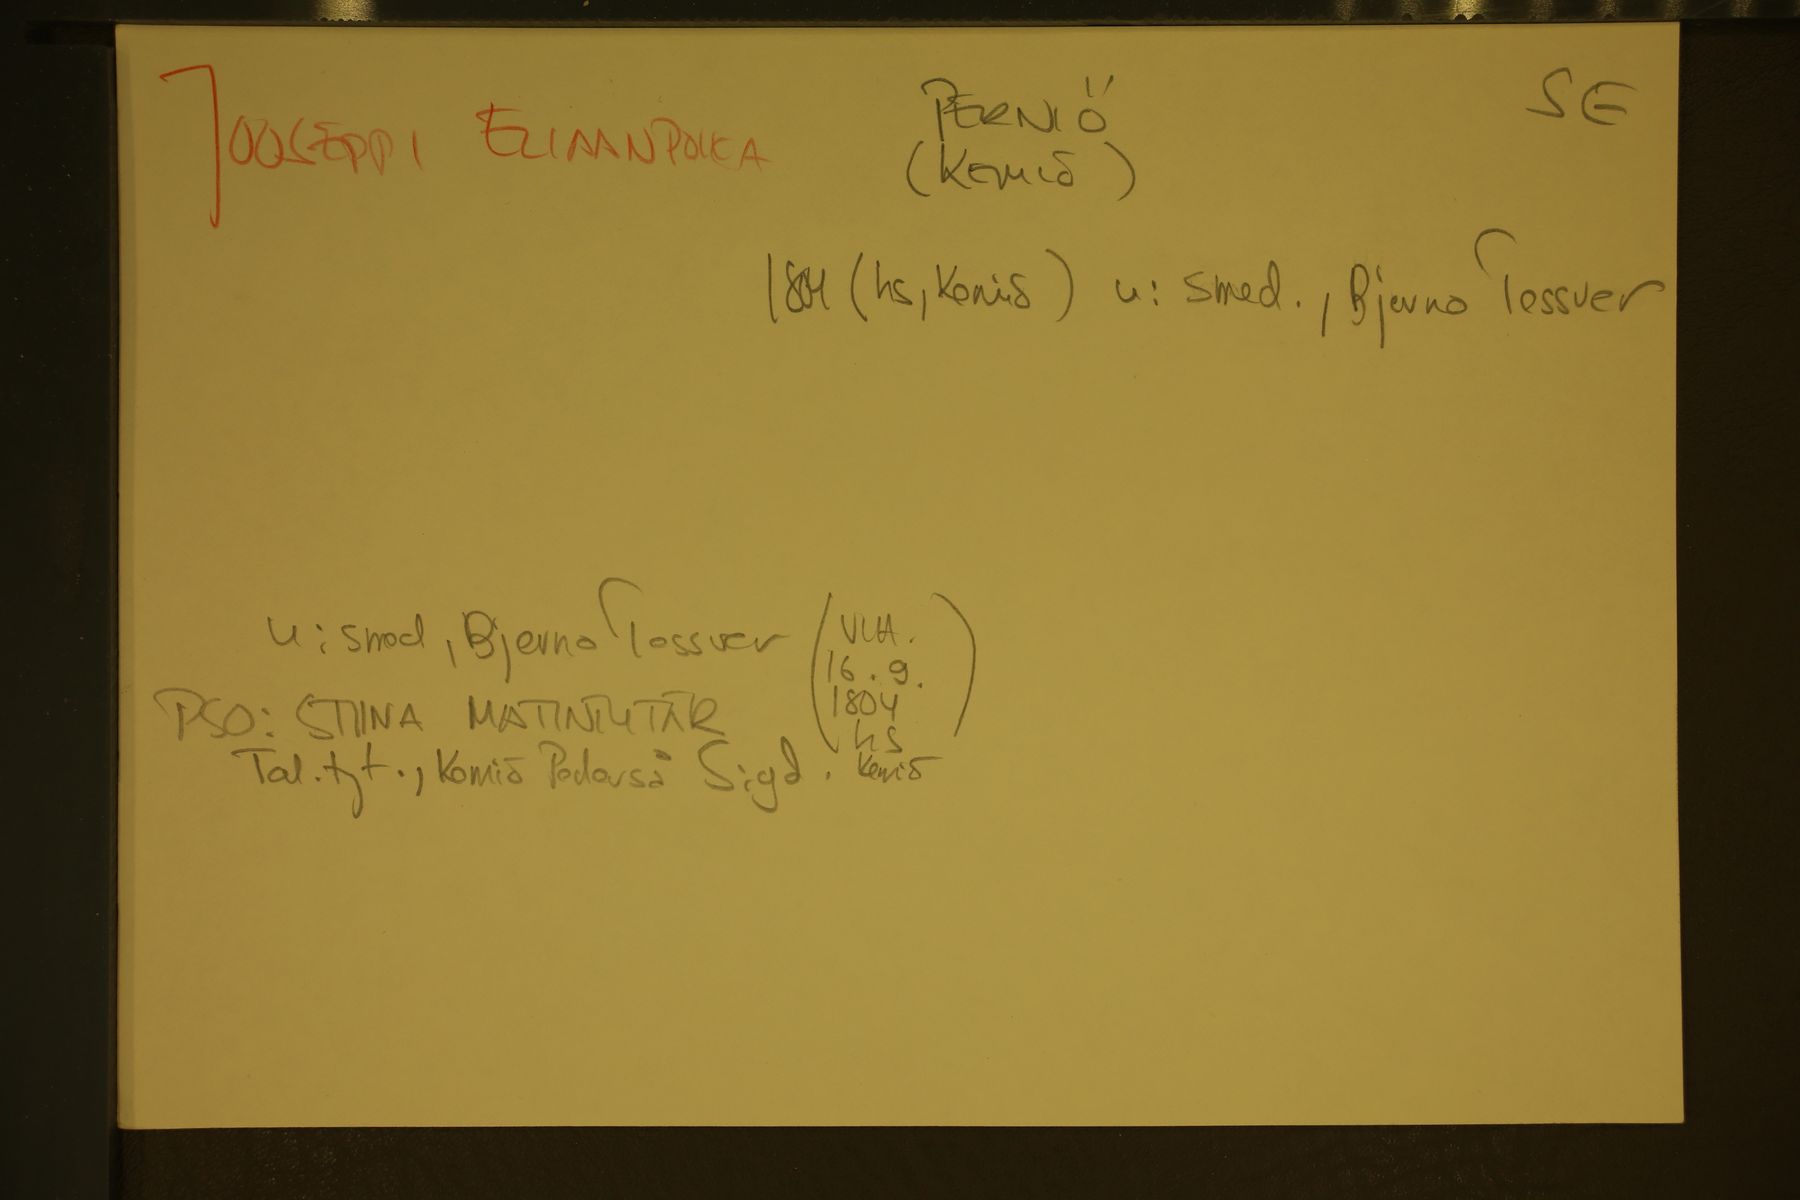 JOOSEPPI ELIAANPOIKA PERNIÖ SE
(KEMIÖ)
1804 (hs, Kemiö) u: smed., Bjerno Tessver
u: smed, Bjerno Tessver (VLIA. 16.9. 1804 hs Kemiö)
PSO: STIINA MATINTYTÄR
Tal. tyt., Kemiö Pedarså Sigd.